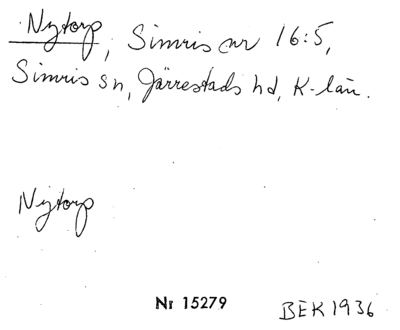 Nytorp, Simris nr 16:5,
Simris sn, Järrestads hd, K-län.
Nytorp
Nr 15279 BEK 1936